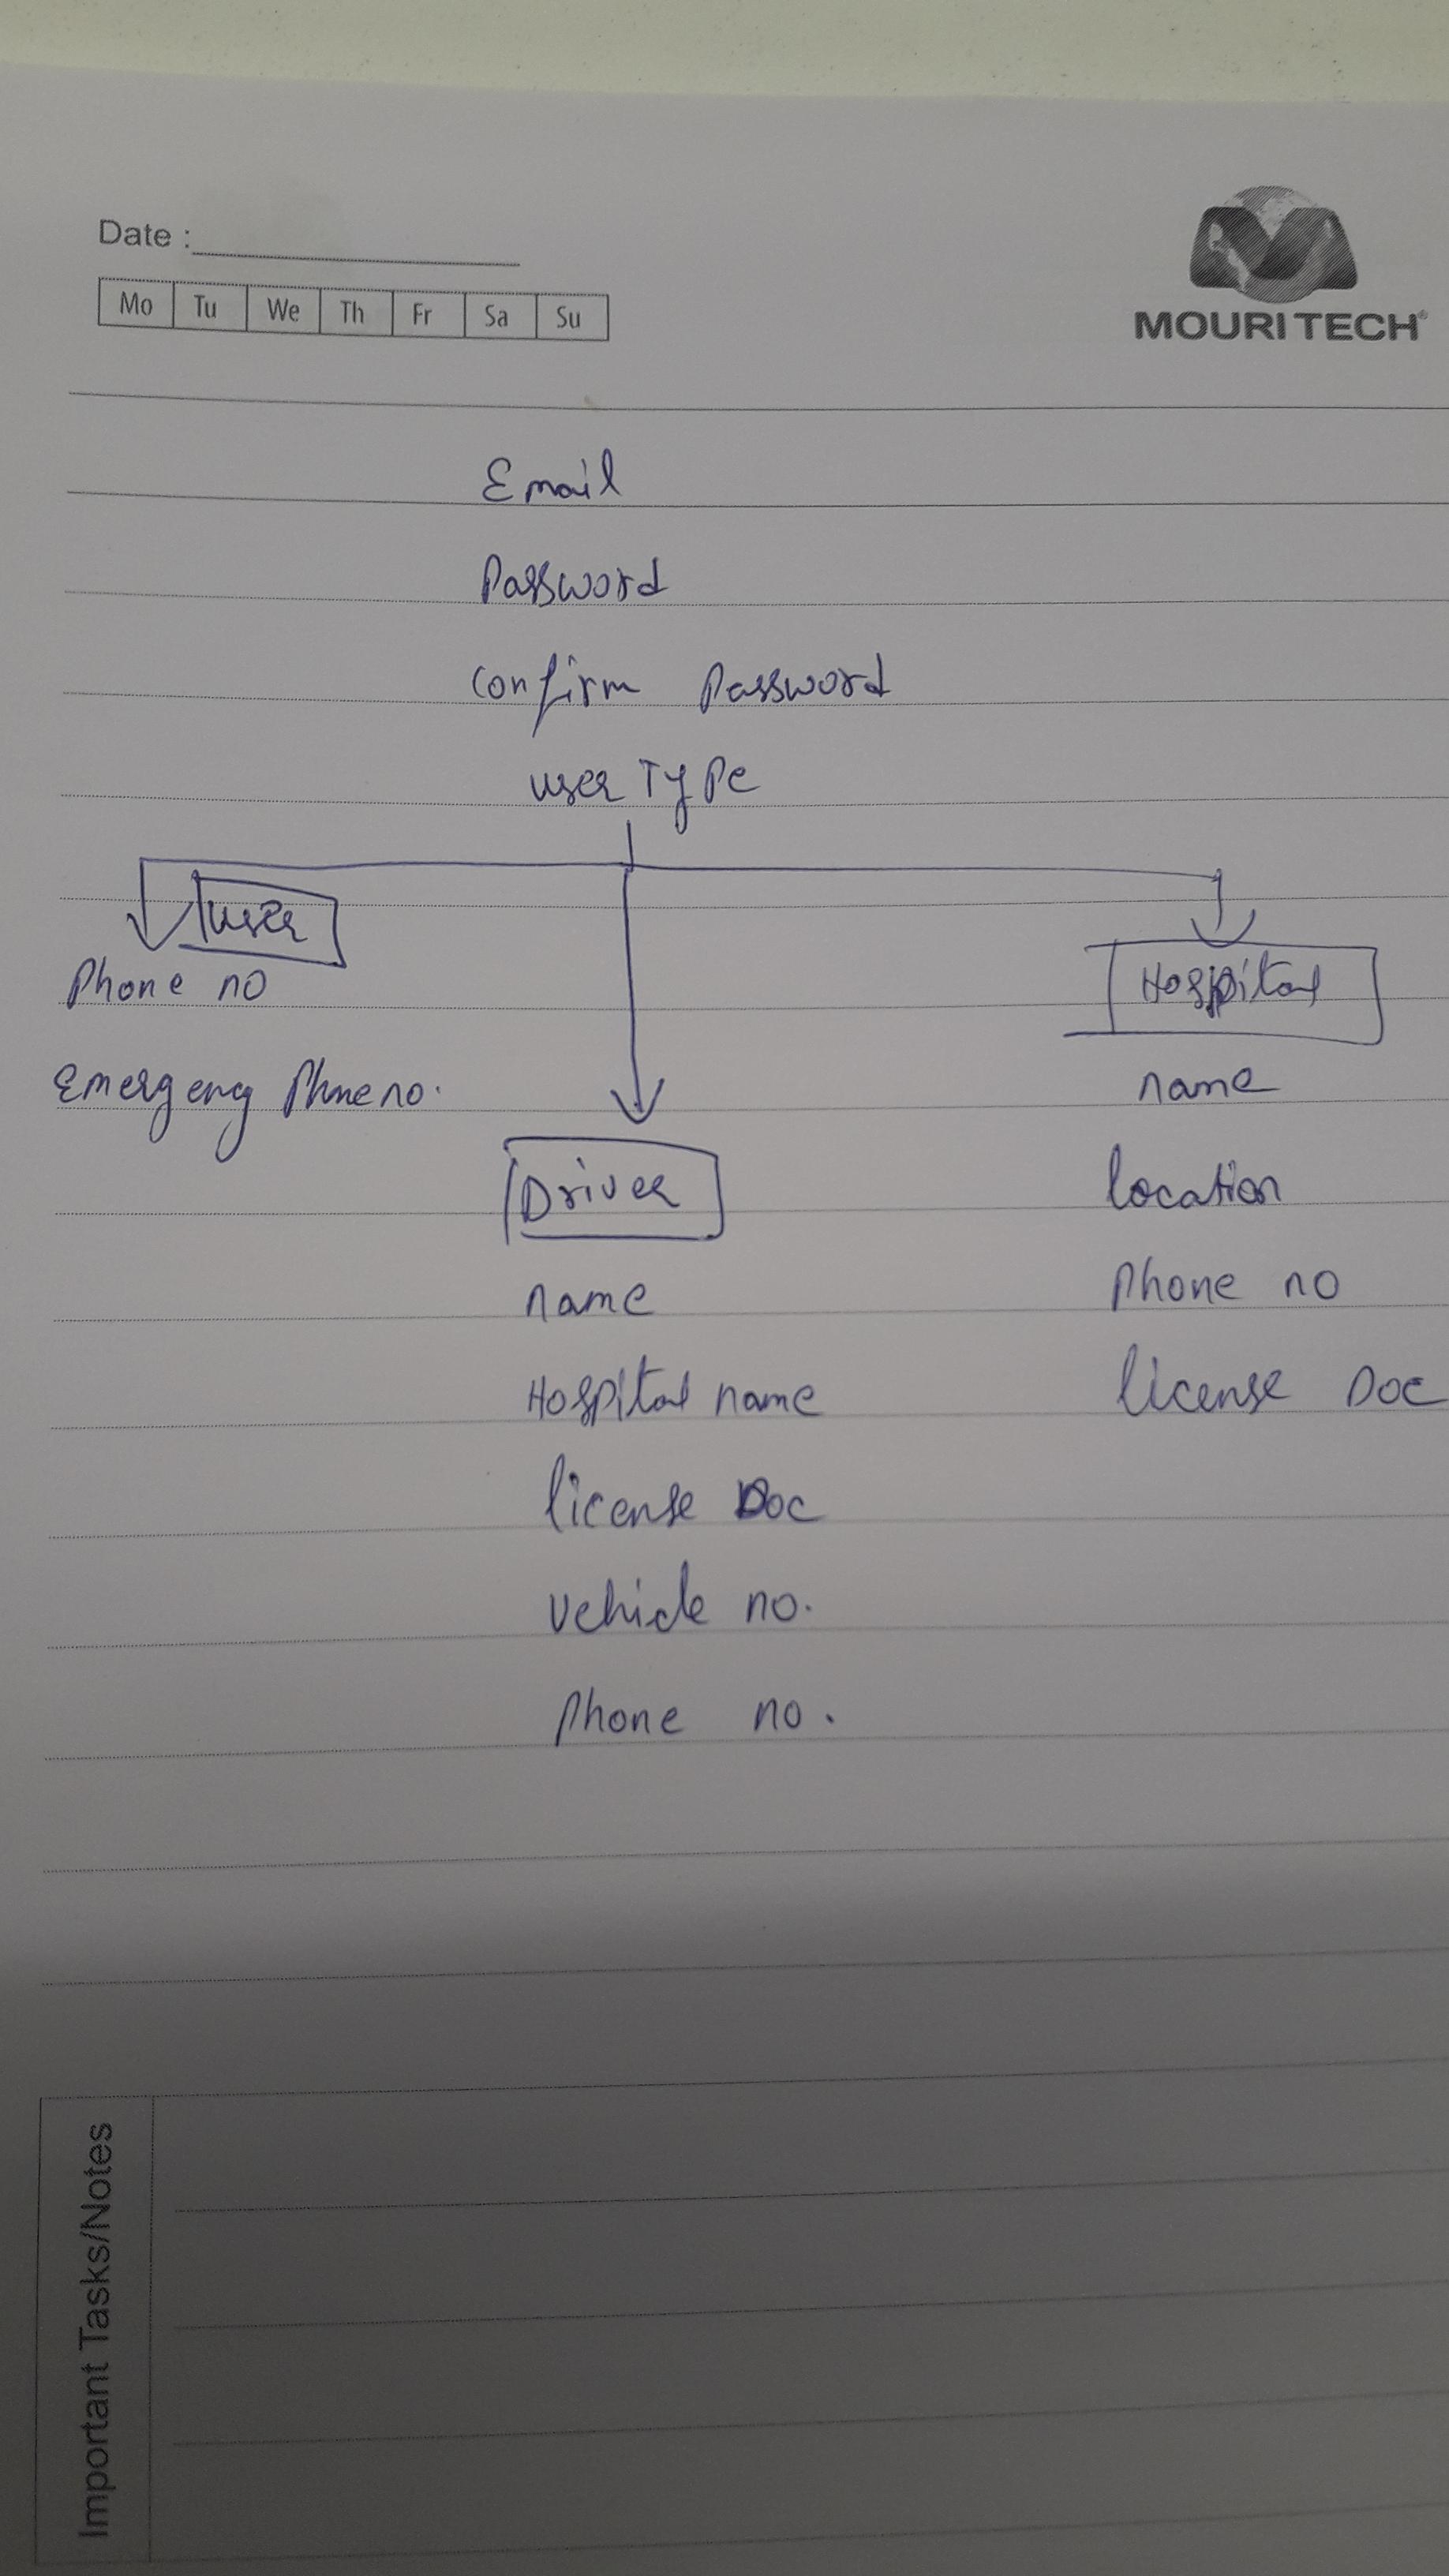 Date :
Mo Tu We Th Fr Sa Su
MOURI TECH®
Email
Password
Confirm Password
user Type
user
Phone no
Emergency Phone no.
Driver
name
Hospital name
license Doc
vehicle no.
Phone no.
Hospital
name
location
Phone no
license Doc
Important Tasks/Notes